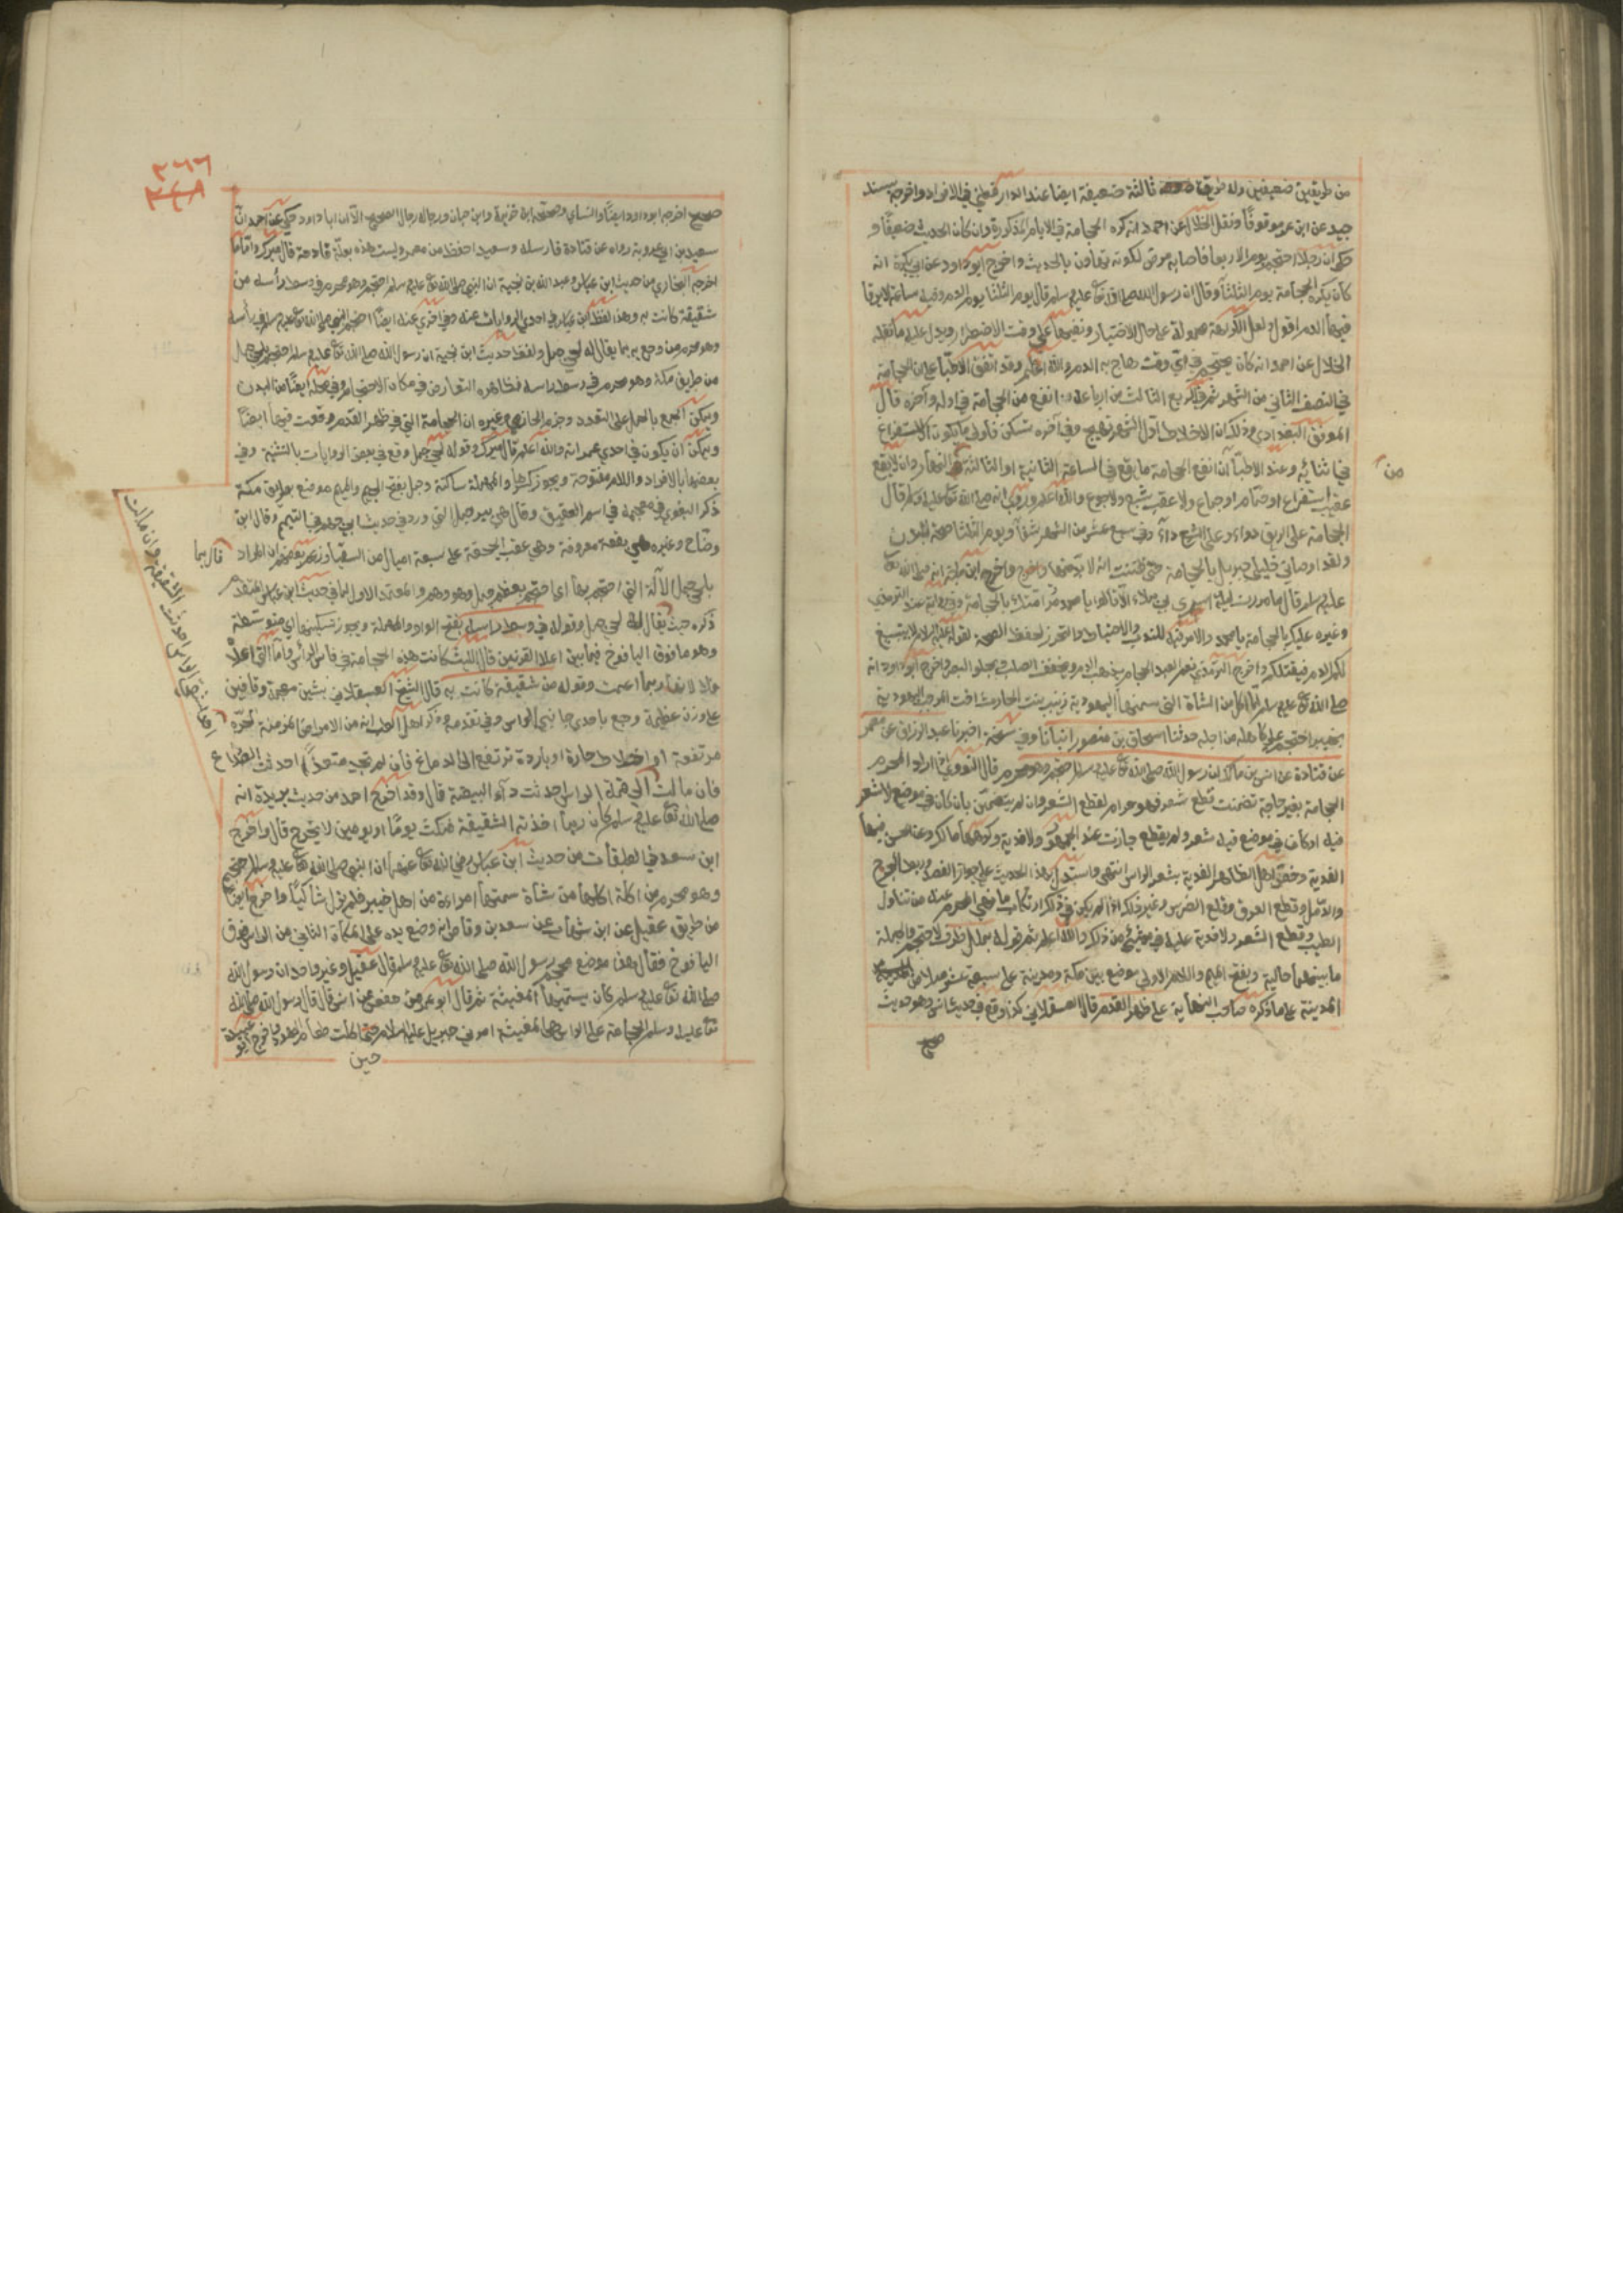 من طريقين ضعيفين وله طريق ثالثة ضعيفة ايضا عند الدارقطني في الافراد واخرجه بسند
جيد عن ابن عمر موقوفا ونقل الخلال عن احمد انه كره الحجامة في الايام المذكورة وان كان الحديث ضعيفا و
حكي ان رجلا احتجم يوم الاربعا فاصابه مرض لكونه تهاون بالحديث واخرج ابو داود عن ابي بكرة انه
كان يكره الحجامة يوم الثلثا وقال ان رسول الله صلى الله تع عليه وسلم قال يوم الثلثا يوم الدم وفيه ساعة لا يرقا
فيها الدم اقول ولعل الكراهة محمولة على حال الاختيار ونفيها على وقت الاضطرار ويدل عليه ما نقله
الخلال عن احمد انه كان يحتجم في اي وقت هاج به الدم والله اعلم وقد اتفق الاطبا على ان الحجامة
في النصف الثاني من الشهر ثم في الربع الثالث من ارباعه انفع من الحجامة في اوله وآخره قال
الموفق البغدادي وذلك ان الاخلاط اول الشهر تهيج وفي آخره تسكن فاولى ما يكون الاستفراغ
في اثنائه وعند الاطبا ان انفع الحجامة ما يقع في الساعة الثانية او الثالثة من النهار وان لا يقع
من
عقيب استفراغ او حمام او جماع ولا عقب شبع ولا جوع والله اعلم وروي انه صلى الله تع عليه وسلم قال
الحجامة على الريق دواء وعلى الشبع داء وفي سبع عشر من الشهر شفا ويوم الثلثا صحة للبدن
ولقد اوصاني خليلي جبريل بالحجامة حتى ظننت انه لا بد منها واخرج ابن ماجة انه صلى الله تع
عليه وسلم قال ما مررت ليلة اسري بي بملاء الا قالوا يا محمد مر امتك بالحجامة وفي رواية عند الترمذي
وغيره عليك بالحجامة يا محمد والامر فيه للندب والاحتياط والتحرز لحفظ الصحة لقوله عليه السلام لا يتبيغ
بكم الدم فيقتلكم واخرج الترمذي نعم العبد الحجام يذهب الدم ويخفف الصلب ويجلو البصر واخرج ابو داود انه
صلى الله تع عليه وسلم لما اكل من الشاة التي سمتها اليهودية زينب بنت الحارث اخت مرحب اليهودية
بخيبر احتجم على كاهله من اجله حدثنا اسحاق بن منصور انبأنا وفي نسخة اخبرنا عبد الرزاق عن معمر
عن قتادة عن انس بن مالك ان رسول الله صلى الله تع عليه وسلم احتجم وهو محرم قال النووي اذا اراد المحرم
الحجامة بغير حاجة تضمنت قطع شعر فهو حرام لقطع الشعر وان لم يتضمن بان كان في موضع لا شعر
فيه او كان في موضع فيه شعر ولم يقطع جازت عند الجمهور ولا فدية وكرهها مالك وعن الحسن فيها
الفدية وخص اهل الظاهر الفدية بشعر الراس انتهى واستدل بهذا الحديث على جواز الفصد وربط الجرح
والدمل وقطع العرق وقلع الضرس وغير ذلك اذا لم يكن في ذلك ارتكاب ما نهي المحرم عنه من تناول
الطيب وقطع الشعر ولا فدية عليه في شيء من ذلك والله اعلم ثم قوله بملل ظرف لاحتجم والجملة
ما بينهما حالية وبفتح الميم واللام الاولى موضع بين مكة ومدينة على سبعة عشر ميلا من
المدينة على ما ذكره صاحب النهاية على ظهر القدم قال العسقلاني كذا وقع في حديث انس وهو حديث
صح
٣٦٦
صحيح اخرجه ابو داود ايضا والنساي وصححه ابن خزيمة وابن حبان ورجاله رجال الصحيح الا ان ابا داود حكى عن احمد ان
سعيد بن ابي عروبة رواه عن قتادة فارسله وسعيد احفظ من معمر وليست هذه بعلة قادحة قال ميرك واما ما
اخرجه البخاري من حديث ابن عباس وعبد الله بن بحينة ان النبي صلى الله تع عليه وسلم احتجم وهو محرم في وسط رأسه من
شقيقة كانت به وهذا لفظ ابن عباس في احدى الروايات عنه وفي اخرى عنه ايضا احتجم النبي صلى الله تع عليه وسلم في رأسه
وهو محرم من وجع به بما يقال له لحي جمل ولفظ حديث ابن بحينة ان رسول الله صلى الله تع عليه وسلم احتجم بلحي جمل
من طريق مكة وهو محرم في وسط راسه فظاهره التعارض في مكان الاحتجام وفي محله ايضا من البدن
ويمكن الجمع بالحمل على التعدد وجزم الحازمي وغيره ان الحجامة التي في ظهر القدم وقعت فيها ايضا
ويمكن ان يكون في احدى عمراته والله اعلم قال ميرك وقوله لحي جمل وقع في بعض الروايات بالتثنية وفي
بعضها بالافراد واللام مفتوحة ويجوز كسرها والمهملة ساكنة وجمل بفتح الجيم والميم موضع بطريق مكة
ذكر البغوي في معجمه في اسم العقيق وقال هي بير جمل التي ورد في حديث ابي جهم في التيمم وقال ابن
وضاح وغيره هي بقعة معروفة وهي عقبة الجحفة على سبعة اميال من السقيا وزعم بعضهم ان المراد
بلحي جمل الآلة التي احتجم بها اي احتجم بعظم جمل وهو وهم والمعتمد الاول لما في حديث ابن عباس المتقدم
ذكره حيث يقال له لحي جمل وقوله في وسط راسه بفتح الواو والمهملة ويجوز تسكينها اي متوسطه
وهو ما فوق اليافوخ فيما بين اعلا القرنين قال الليث كانت هذه الحجامة في فاس الرأس واما التي اعلاه
فلا لانها ربما اعمت وقوله من شقيقة كانت به قال الشيخ العسقلاني بشين معجمة وقافين
على وزن عظيمة وجع باحدى جانبي الراس وفي مقدمه وذكر اهل الطب انه من الامراض المزمنة
مرتفعة او اخلاط حارة او باردة ترتفع الى الدماغ فان لم تجد منفذا احدث الصداع
فان مالت الى قمة الراس احدثت داء البيضة قال وقد اخرج احمد من حديث بريدة انه
صلى الله تع عليه وسلم كان ربما اخذته الشقيقة فمكث يوما او يومين لا يخرج قال واخرج
ابن سعد في الطبقات من حديث ابن عباس رضي الله تع عنهما ان النبي صلى الله تع عليه وسلم احتجم
وهو محرم من اكلة اكلها من شاة سمتها امراءة من اهل خيبر فلم يزل شاكيا واخرج ايضا
من طريق عقيل عن ابن شهاب عن سعد بن وقاص انه وضع يده على المكان الناتي من الراس فوق
اليافوخ فقال هذا موضع محجم رسول الله صلى الله تع عليه وسلم قال عقيل وغير واحد ان رسول الله
صلى الله تع عليه وسلم كان يسميها المغيثة ثم قال ابو عمر ومن حفص عن انس قال قال رسول الله صلى الله
تع عليه وسلم الحجامة على الراس هي المغيثة امرني جبريل عليه السلام اكلت طعام اليهودية واخرج ابو
حين